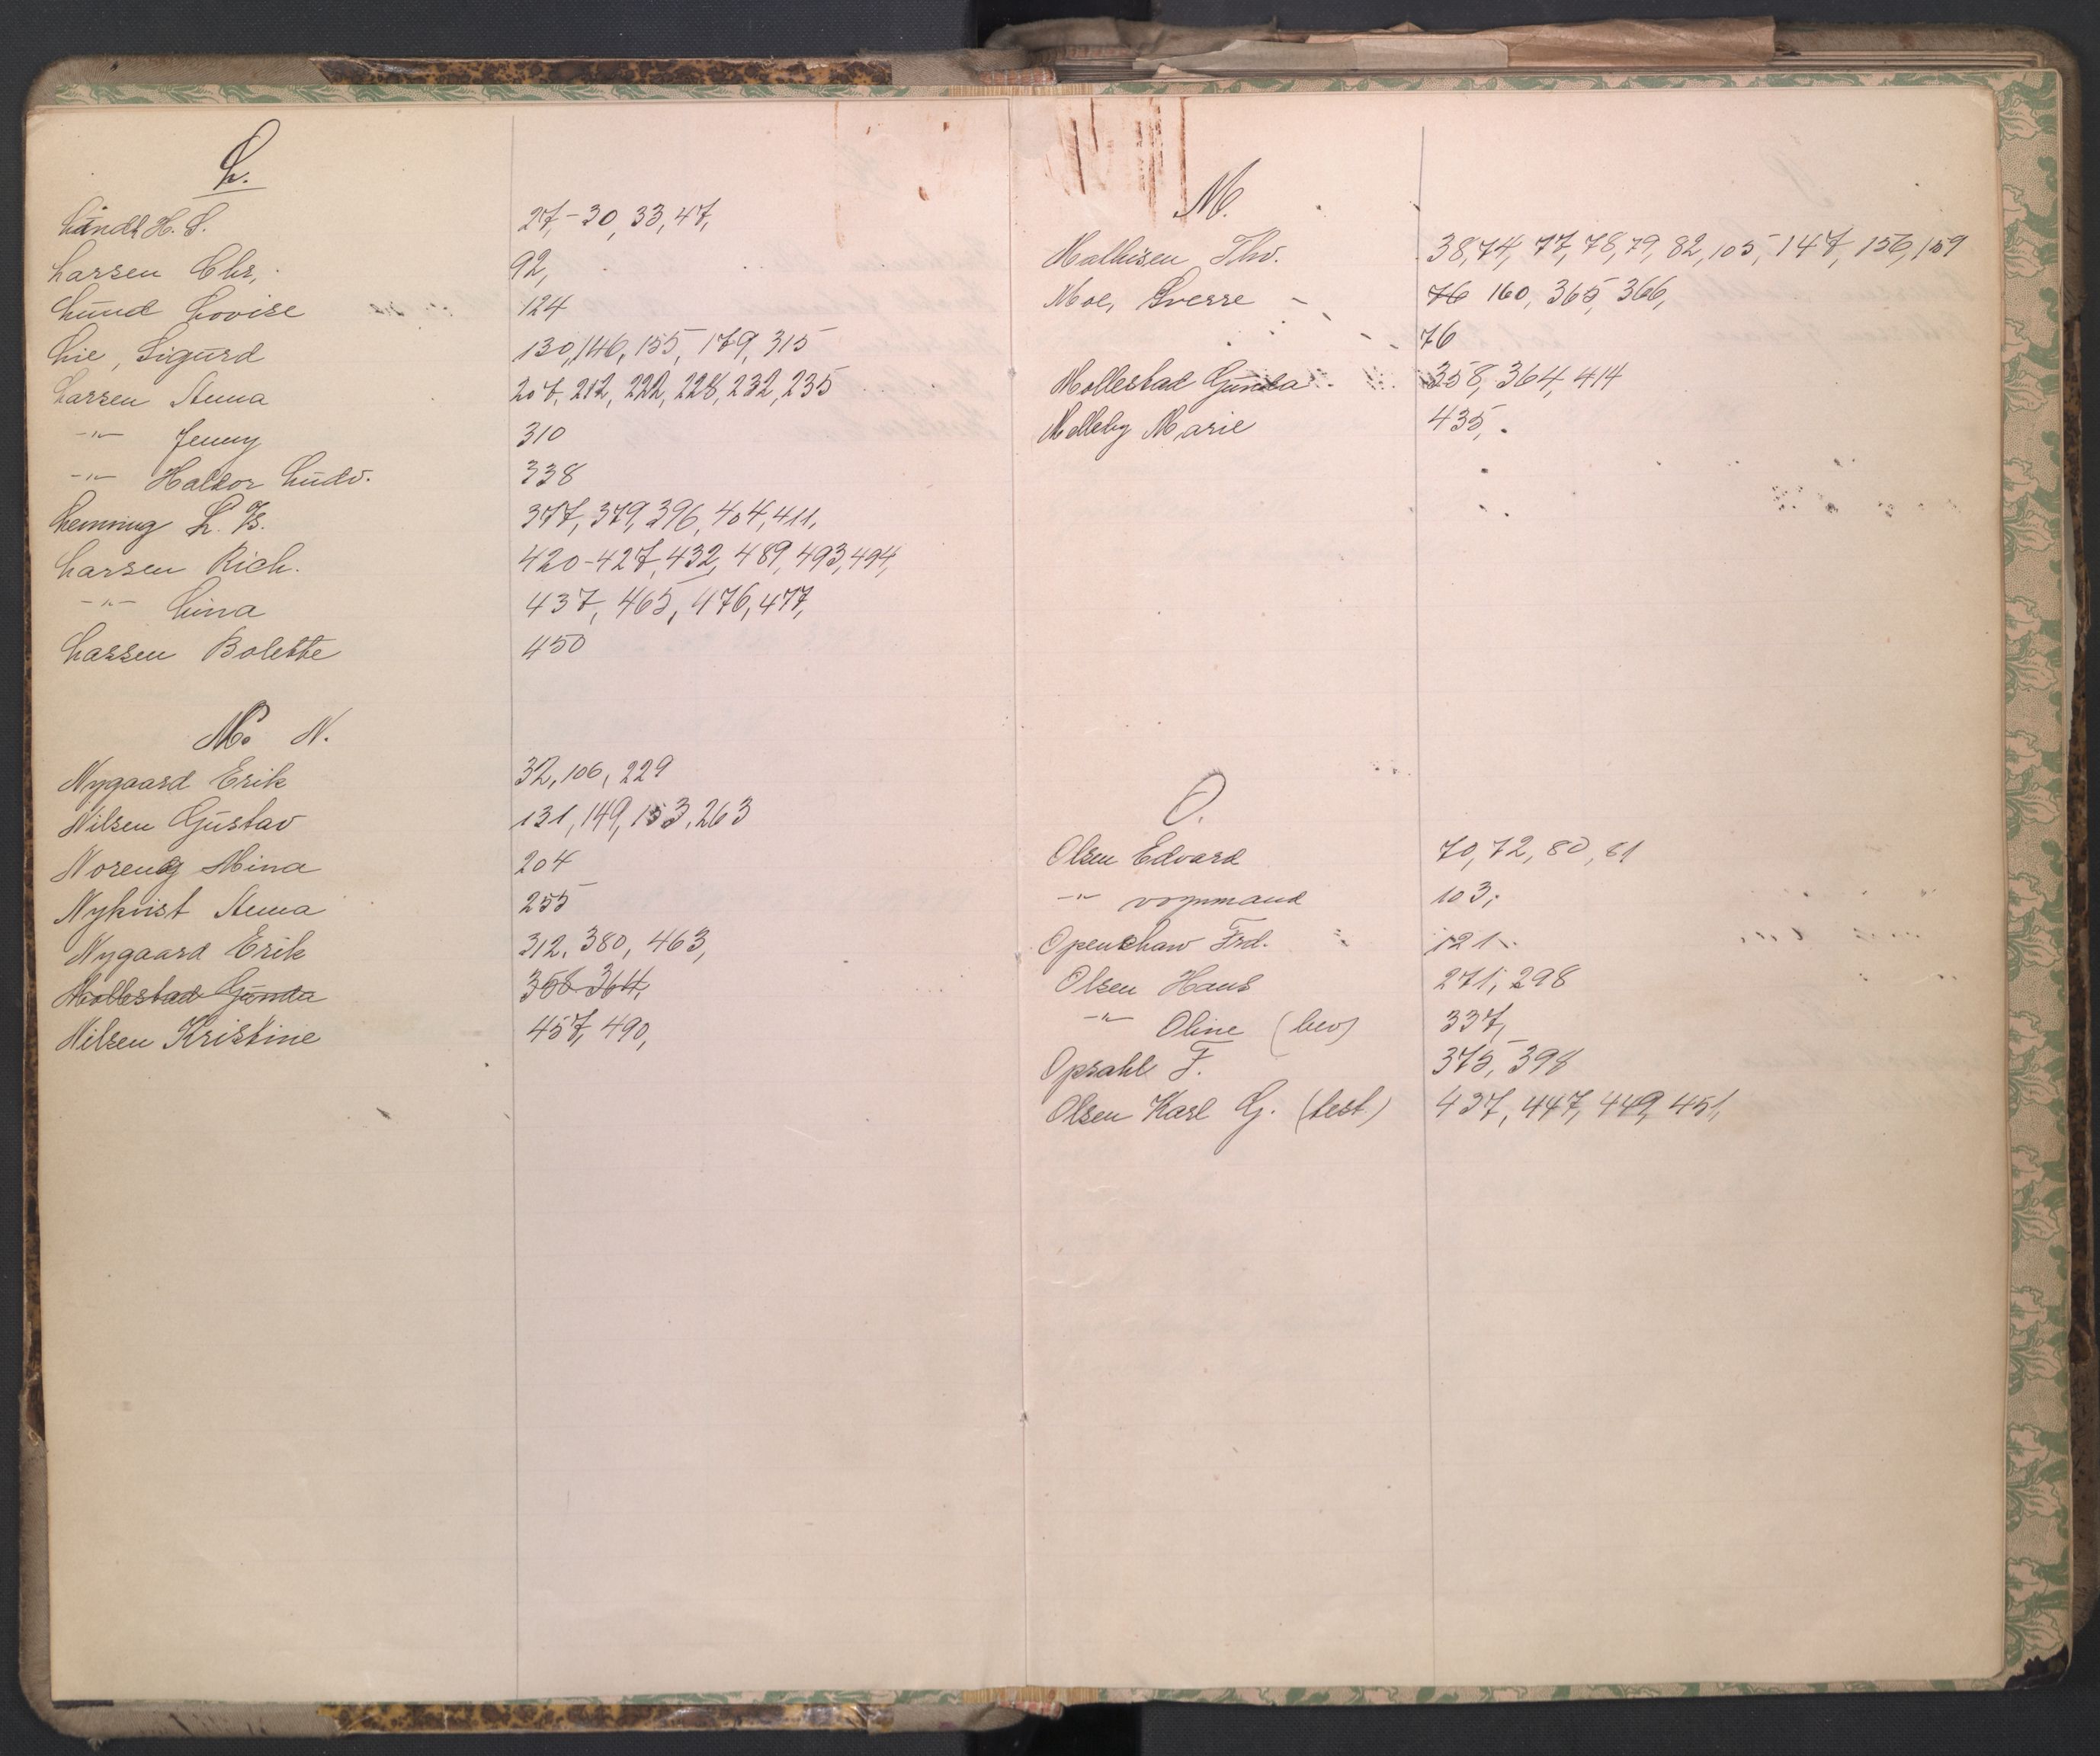 L.
Lundh H. S. 27,-30, 33, 47,
Larsen Chr, 92,
Lund Lovise 124
Lie, Sigurd 130, 146, 155, 179, 315
Larsen Anna 207, 212, 222, 228, 232, 235
-"- Jenny 310
-"- Haldor Ludv. 338
Lemming L. B. 377, 379, 396, 404, 411,
Larsen Rich. 420-427, 432, 489, 493, 494,
-"- Lina 437, 465, 476, 477,
Lassen Bolette 450
N.
Nygaard Erik 32, 106, 229
Nilsen Gustav 131, 149, 153, 263
Noreng Mina 204
Nykvist Anna 255
Nygaard Erik 312, 380, 463,
Mollestad Gunda 358 364,
Nilsen Kristine 457, 490,
M.
Mathisen Thv. 38, 74, 77, 78, 79, 82, 105, 147, 156, 159
Moe, Sverre - 76 160, 365, 366,
76
Mollestad Gunda 358, 364, 414
Melleby Marie 435,
O.
Olsen Edvard 70, 72, 80, 81
-"- vognmand 103,
Openshaw Frd. 121
Olsen Hans 271, 298
-"- Oline (bev) 337,
Opsahl F. 375, 398
Olsen Karl G. (test.) 437, 447, 449, 451,